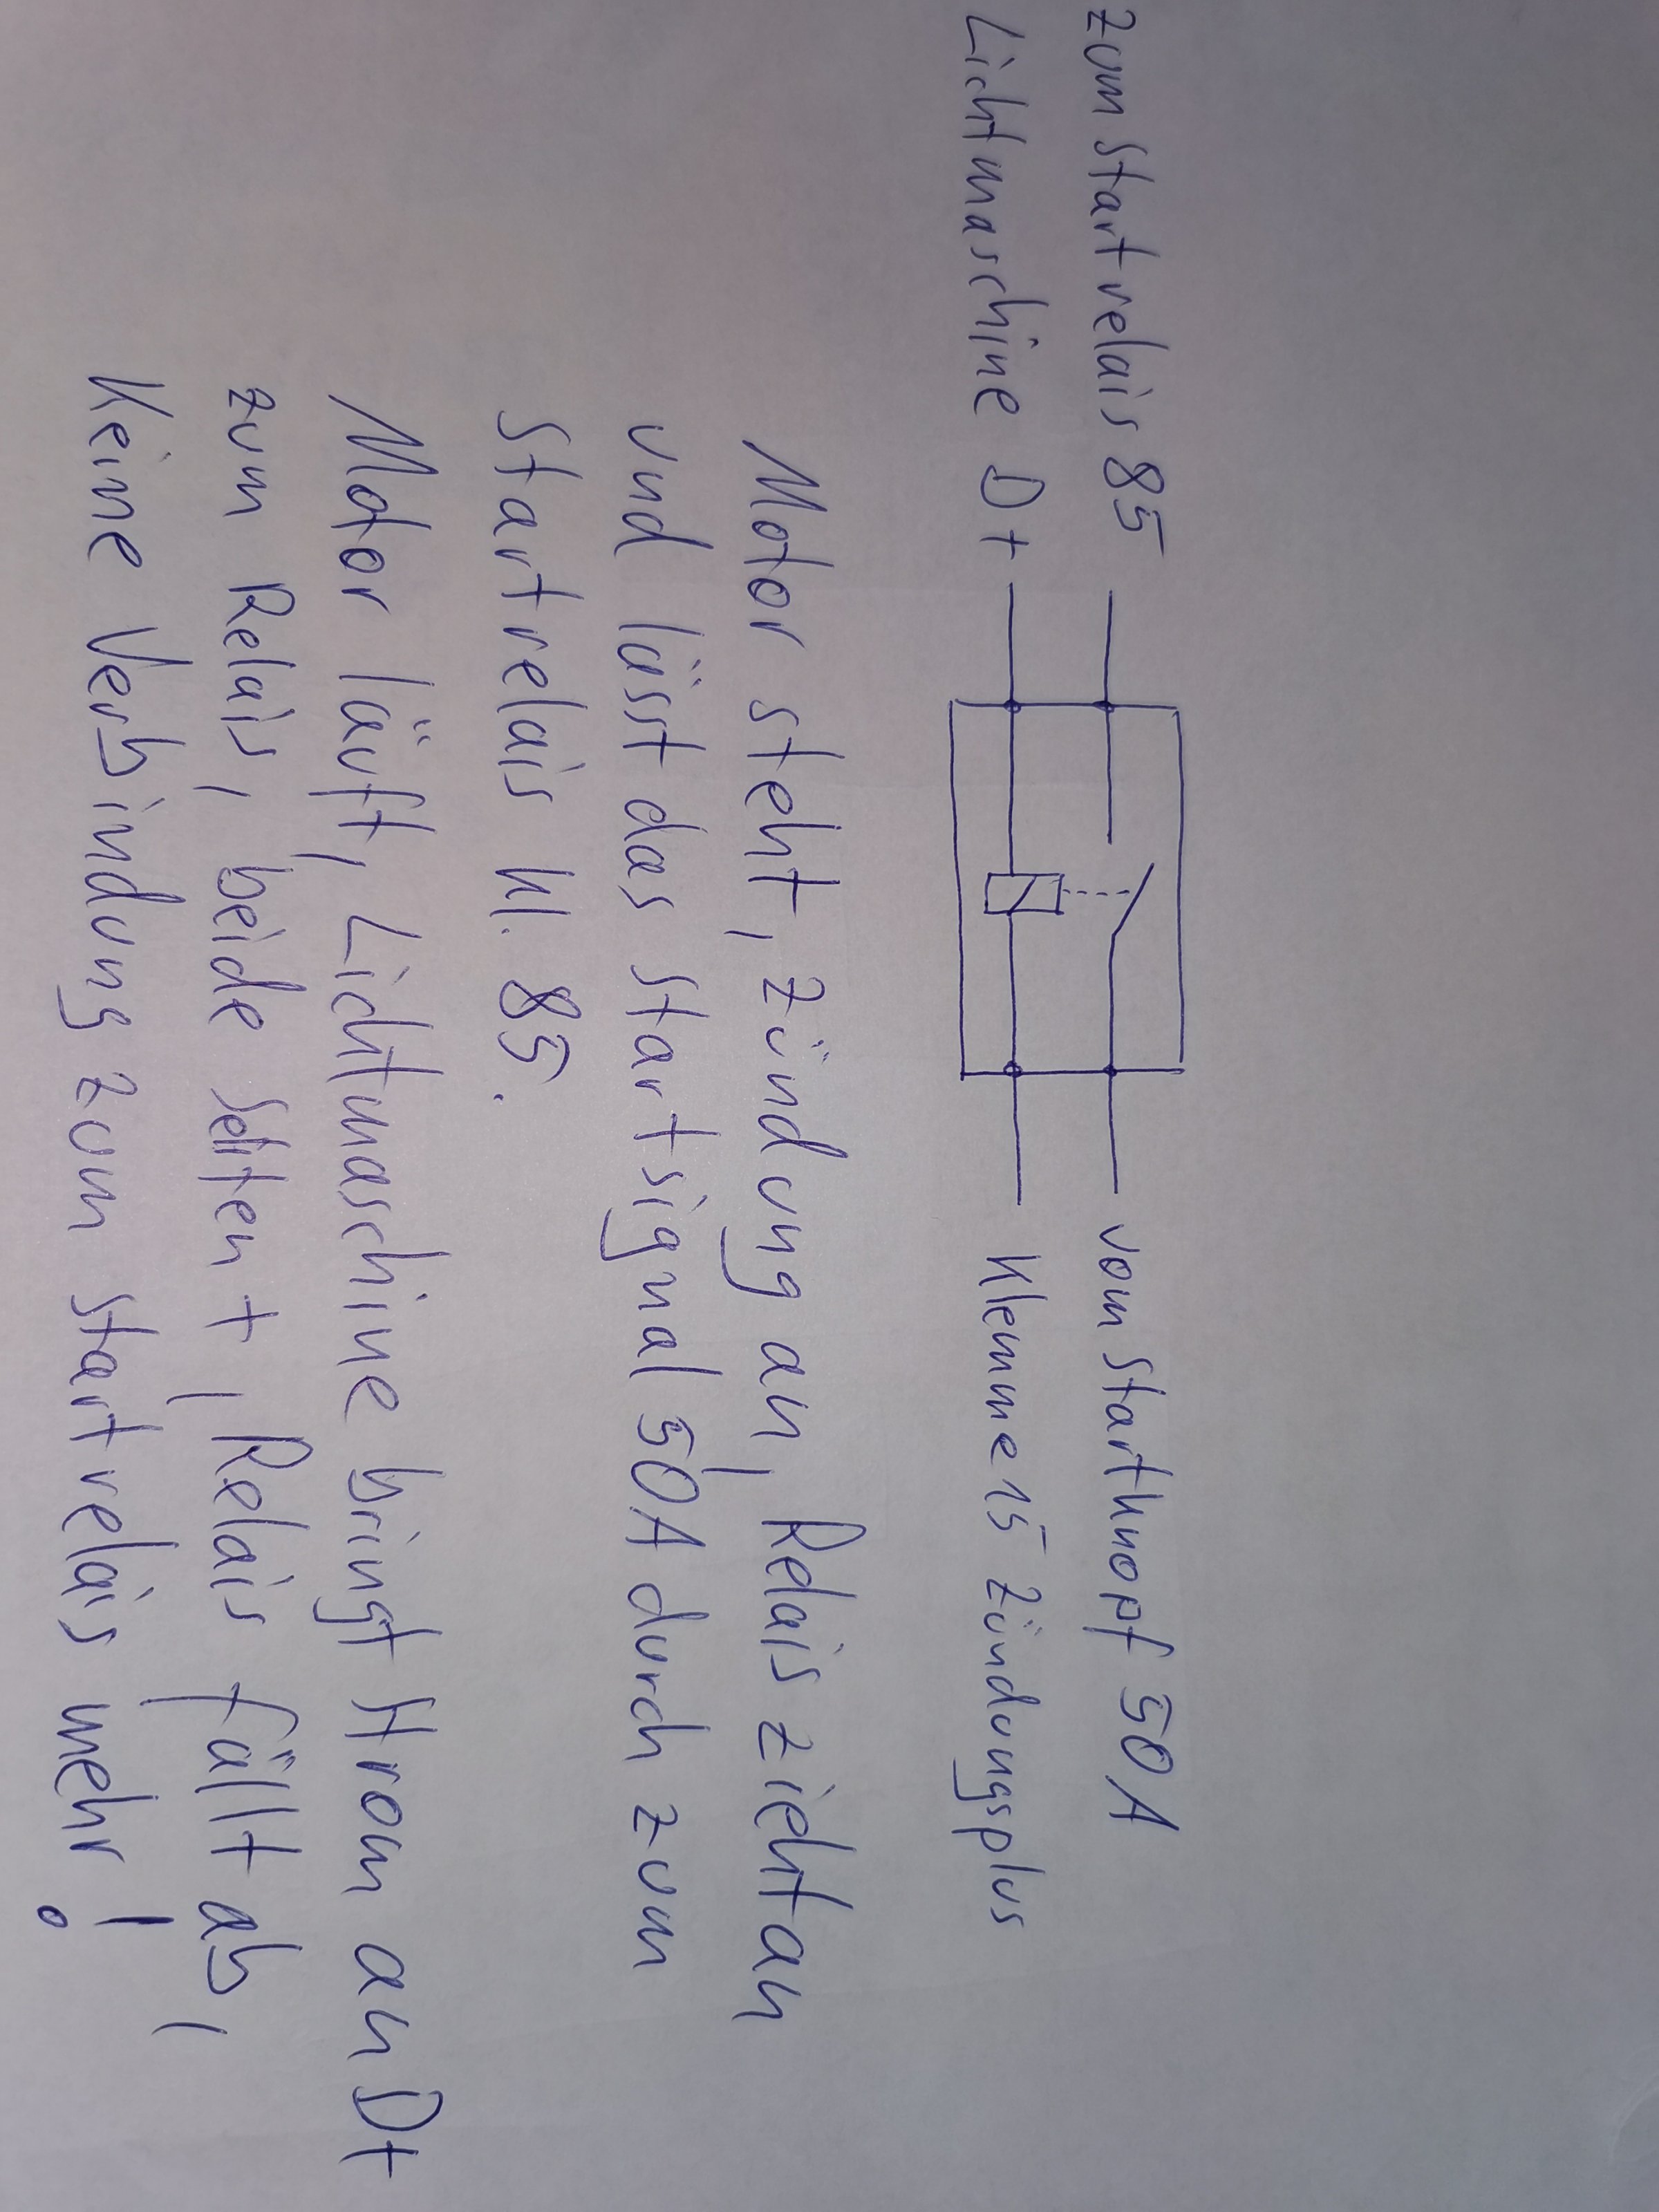 zum Startrelais 85
vom Startknopf 50A
Lichtmaschine D+
Klemme 15 Zündungsplus
Motor steht, Zündung an, Relais zieht an
und lässt das Startsignal 50A durch zum
Startrelais Kl. 85.
Motor läuft, Lichtmaschine bringt Strom an D+
zum Relais, beide Seiten +, Relais fällt ab,
Keine Verbindung zum Startrelais mehr!